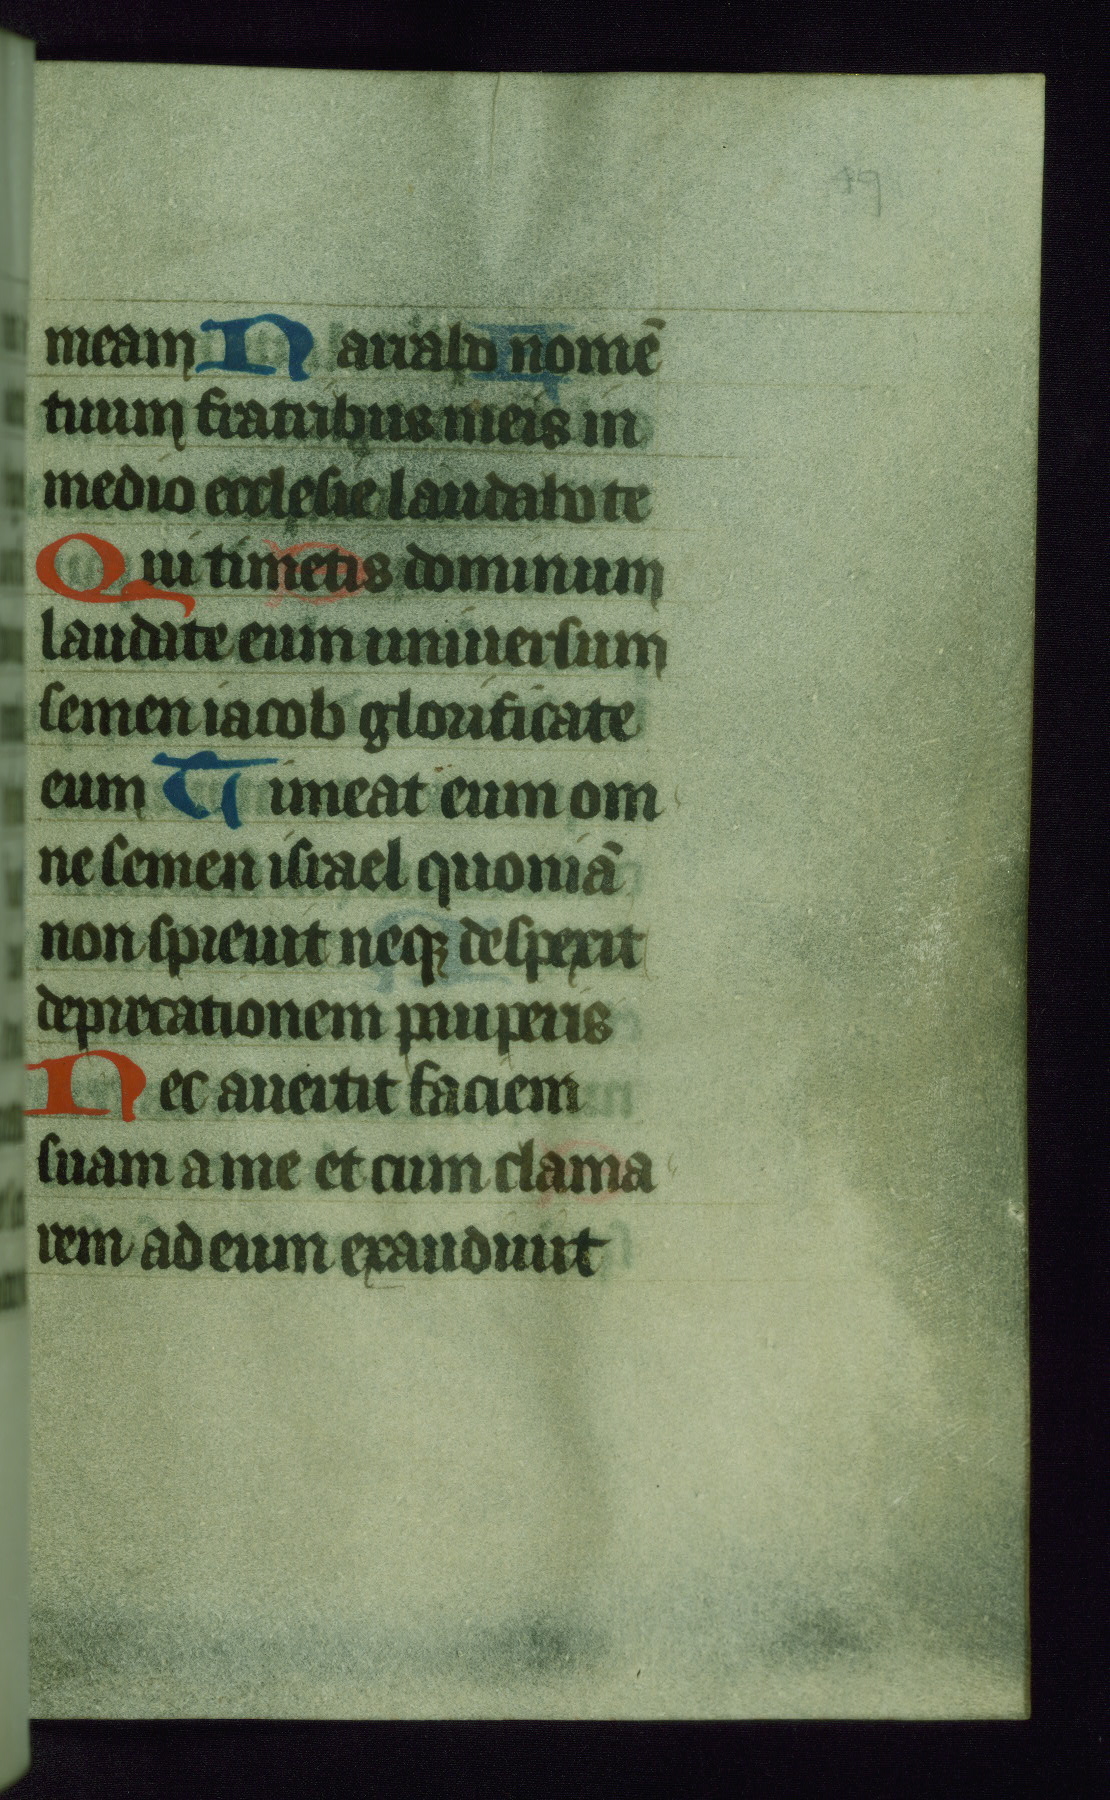 49
meam Narrabo nomē
tuum fratribus meis in
medio ecclesie laudabo te
Qui timetis dominum
laudate eum uniuersum
semen iacob glorificate
eum Timeat eum om
ne semen israel quoniā
non spreuit neqꝫ despexit
deprecationem pauperis
Nec auertit faciem
suam a me et cum clama
rem ad eum exaudiuit